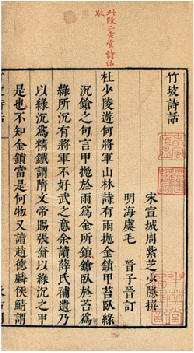 竹坡詩話
宋宣城周紫芝少隱撰
明海虞毛 晉子晉訂
杜少陵遊何將軍山林詩有雨拋金鎖甲苔臥綠
沉鎗之句言甲拋於雨爲金所鎖鎗臥於苔爲
綠所沉有將軍不好武之意余讀薛氏補遺乃
以綠沉爲精鐵謂隋文帝賜張奫以綠沉之甲
是也不知金鎖當是何物又讀趙德麟侯鯖錄